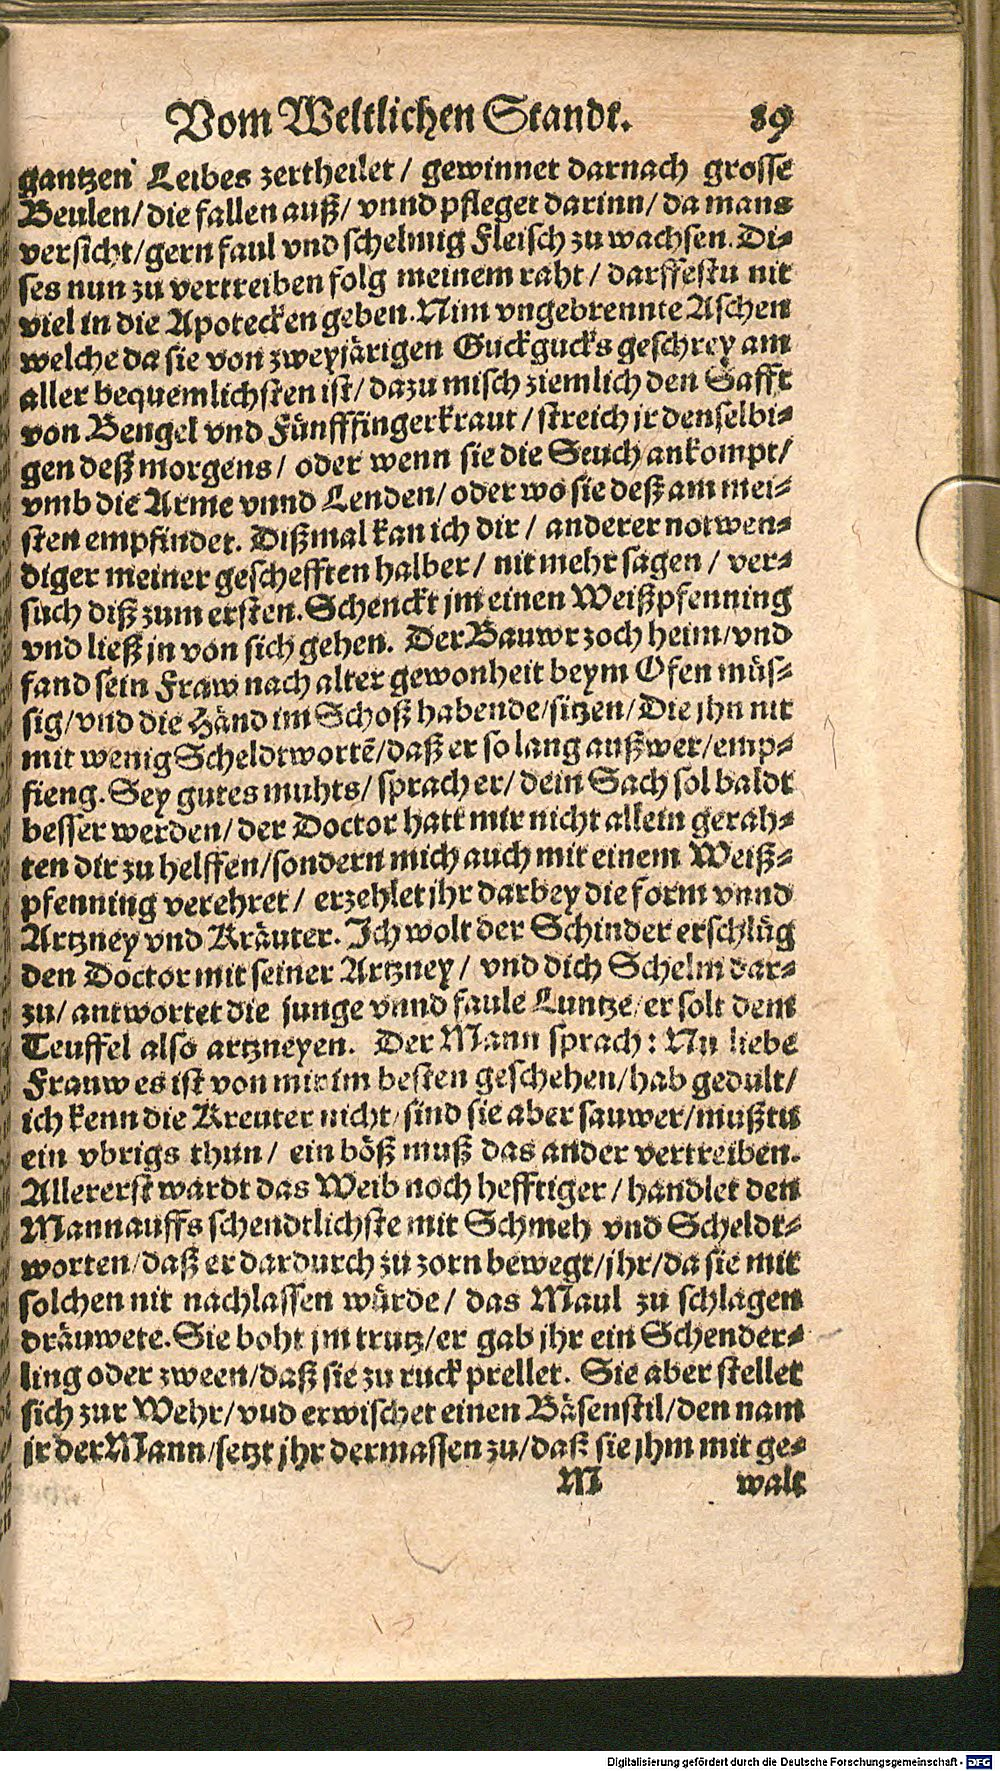 Vom Weltlichen Standt. 89
gantzen Leibes zertheilet / gewinnet darnach grosse
Beulen / die fallen auß / vnnd pfleget darinn / da mans
versicht / gern faul vnd schelmig Fleisch zu wachsen. Di-
ses nun zu vertreiben folg meinem raht / darffestu nit
viel in die Apotecken geben. Nim vngebrennte Aschen
welche da sie von zweyjärigen Guckgucks geschrey am
aller bequemlichsten ist / dazu misch ziemlich den Safft
von Bengel vnd Fünfffingerkraut / streich jr denselbi-
gen deß morgens / oder wenn sie die Seuch ankompt /
vmb die Arme vnnd Lenden / oder wo sie deß am mei-
sten empfindet. Dißmal kan ich dir / anderer notwen-
diger meiner geschefften halber / nit mehr sagen / ver-
such diß zum ersten. Schenckt jm einen Weißpfenning
vnd ließ jn von sich gehen. Der Bauwr zoch heim / vnd
fand sein Fraw nach alter gewonheit beym Ofen müs-
sig / vnd die Händ im Schoß habende / sitzen / Die jhn nit
mit wenig Scheldtwortē / daß er so lang außwer / emp-
fieng. Sey gutes muhts / sprach er / dein Sach sol baldt
besser werden / der Doctor hatt mir nicht allein gerah-
ten dir zu helffen / sondern mich auch mit einem Weiß-
pfenning verehret / erzehlet jhr darbey die form vnnd
Artzney vnd Kräuter. Ich wolt der Schinder erschlüg
den Doctor mit seiner Artzney / vnd dich Schelm dar-
zu / antwortet die junge vnnd faule Luntze / er solt dem
Teuffel also artzneyen. Der Mann sprach : Nu liebe
Frauw es ist von mir im besten geschehen / hab gedult /
ich kenn die Kreuter nicht / sind sie aber sauwer / mußtu
ein vbrigs thun / ein böß muß das ander vertreiben.
Allererst wardt das Weib noch hefftiger / handlet den
Mann auffs schendtlichste mit Schmeh vnd Scheldt-
worten / daß er dardurch zu zorn bewegt / jhr / da sie mit
solchen nit nachlassen würde / das Maul zu schlagen
dräuwete. Sie boht jm trutz / er gab jhr ein Schender-
ling oder zween / daß sie zu ruck prellet. Sie aber stellet
sich zur Wehr / vnd erwischet einen Bäsenstil / den nam
jr der Mann / setzt jhr dermassen zu / daß sie jhm mit ge-
M walt
Digitalisierung gefördert durch die Deutsche Forschungsgemeinschaft - DFG